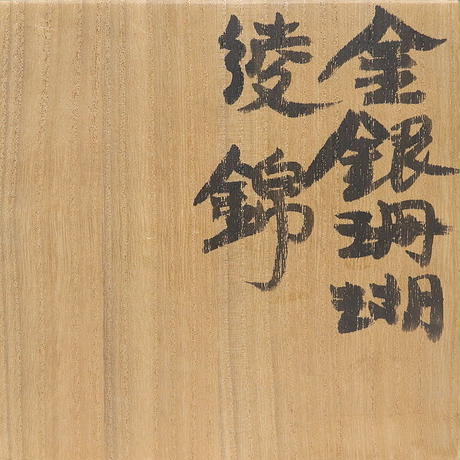 金銀珊瑚
綾錦